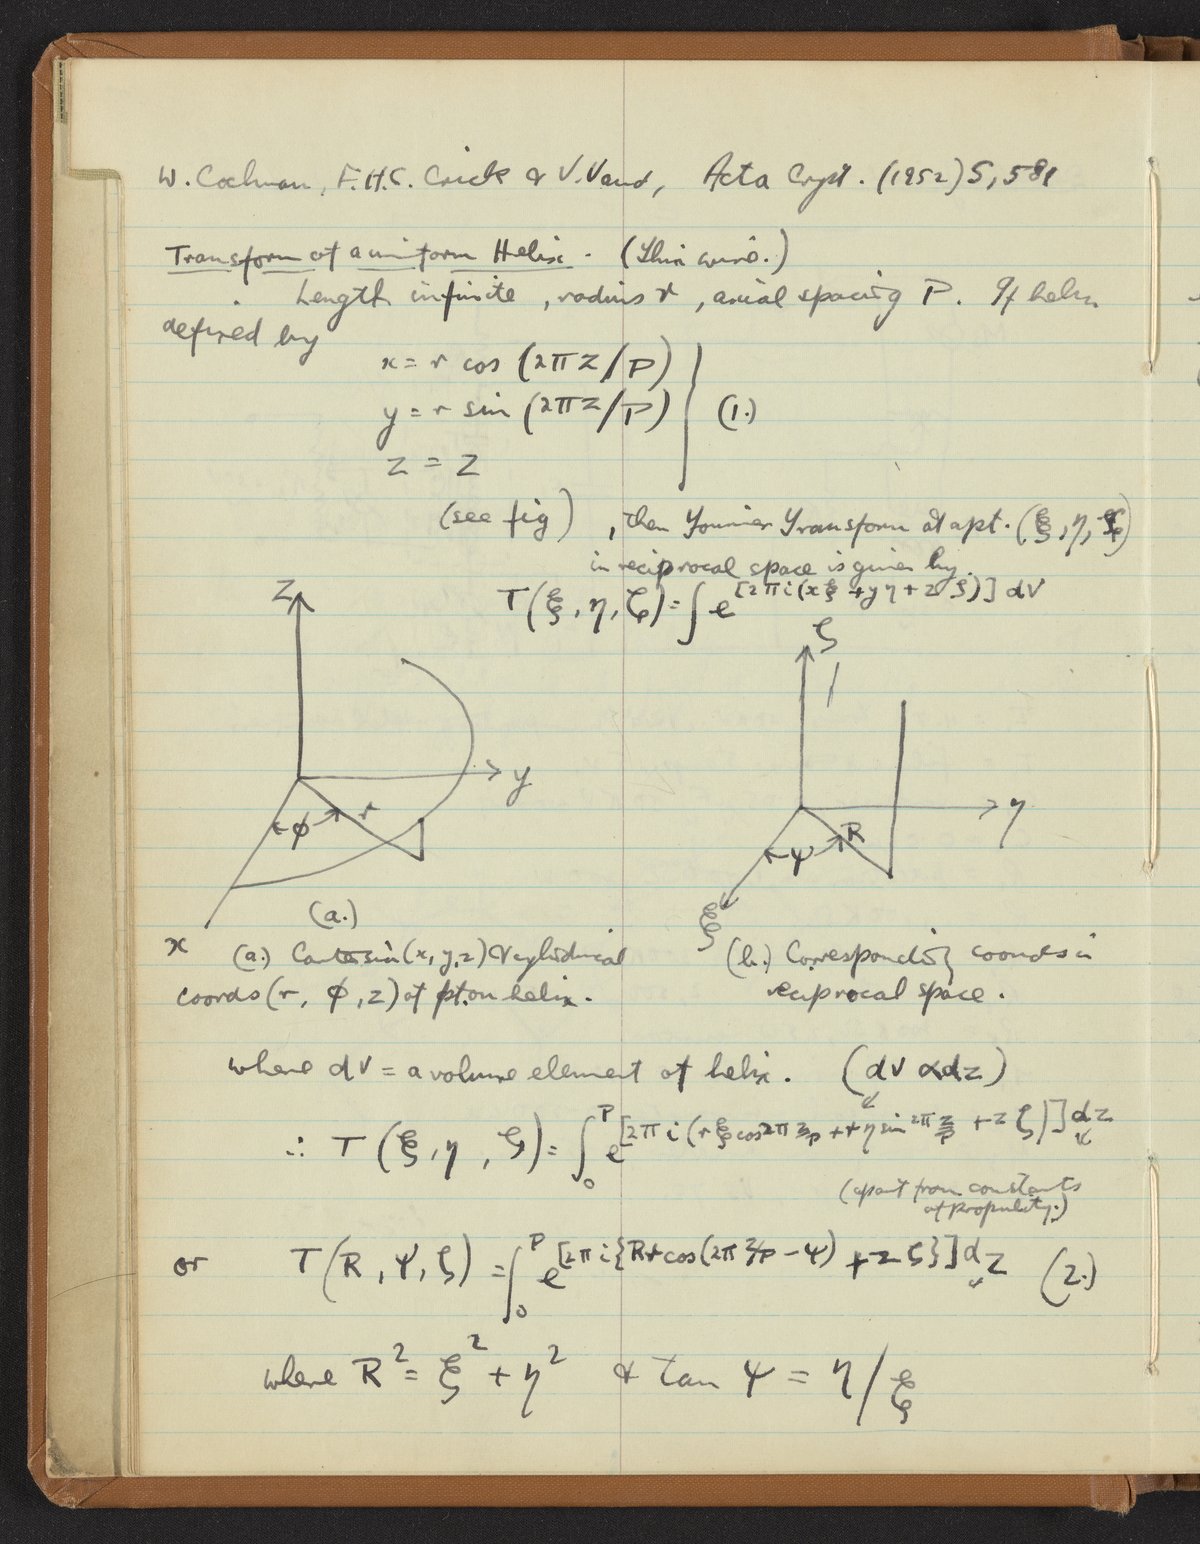 W. Cochran, F.H.C. Crick & V. Vand, Acta Cryst. (1952) 5, 581
Transform of a uniform Helix. (Thin wire.)
Length infinite, radius r, axial spacing P. If helix
defined by
x = r cos (2πz/P)
y = r sin (2πz/P) (1.)
z = z
(see fig), then Fourier Transform at a pt. (ξ, η, ζ)
in reciprocal space is given by.
T(ξ, η, ζ) = ∫ e^[2πi(xξ + yη + zζ)] dV
z
ζ
y
r
φ
x
(a.)
η
R
ψ
ξ
(a.) Cartesian (x, y, z) & cylindrical
coords (r, φ, z) of pt. on helix.
(b.) Corresponding coords in
reciprocal space.
where dV = a volume element of helix. (dV ∝ dz)
∴ T(ξ, η, ζ) = ∫₀^P e^[2πi(rξ cos 2π z/P + rη sin 2π z/P + zζ)] dz
(apart from constants
of propnlity.)
or T(R, ψ, ζ) = ∫₀^P e^[2πi{Rr cos(2π z/P − ψ) + zζ}] dz (2.)
where R² = ξ² + η² & tan ψ = η/ξ